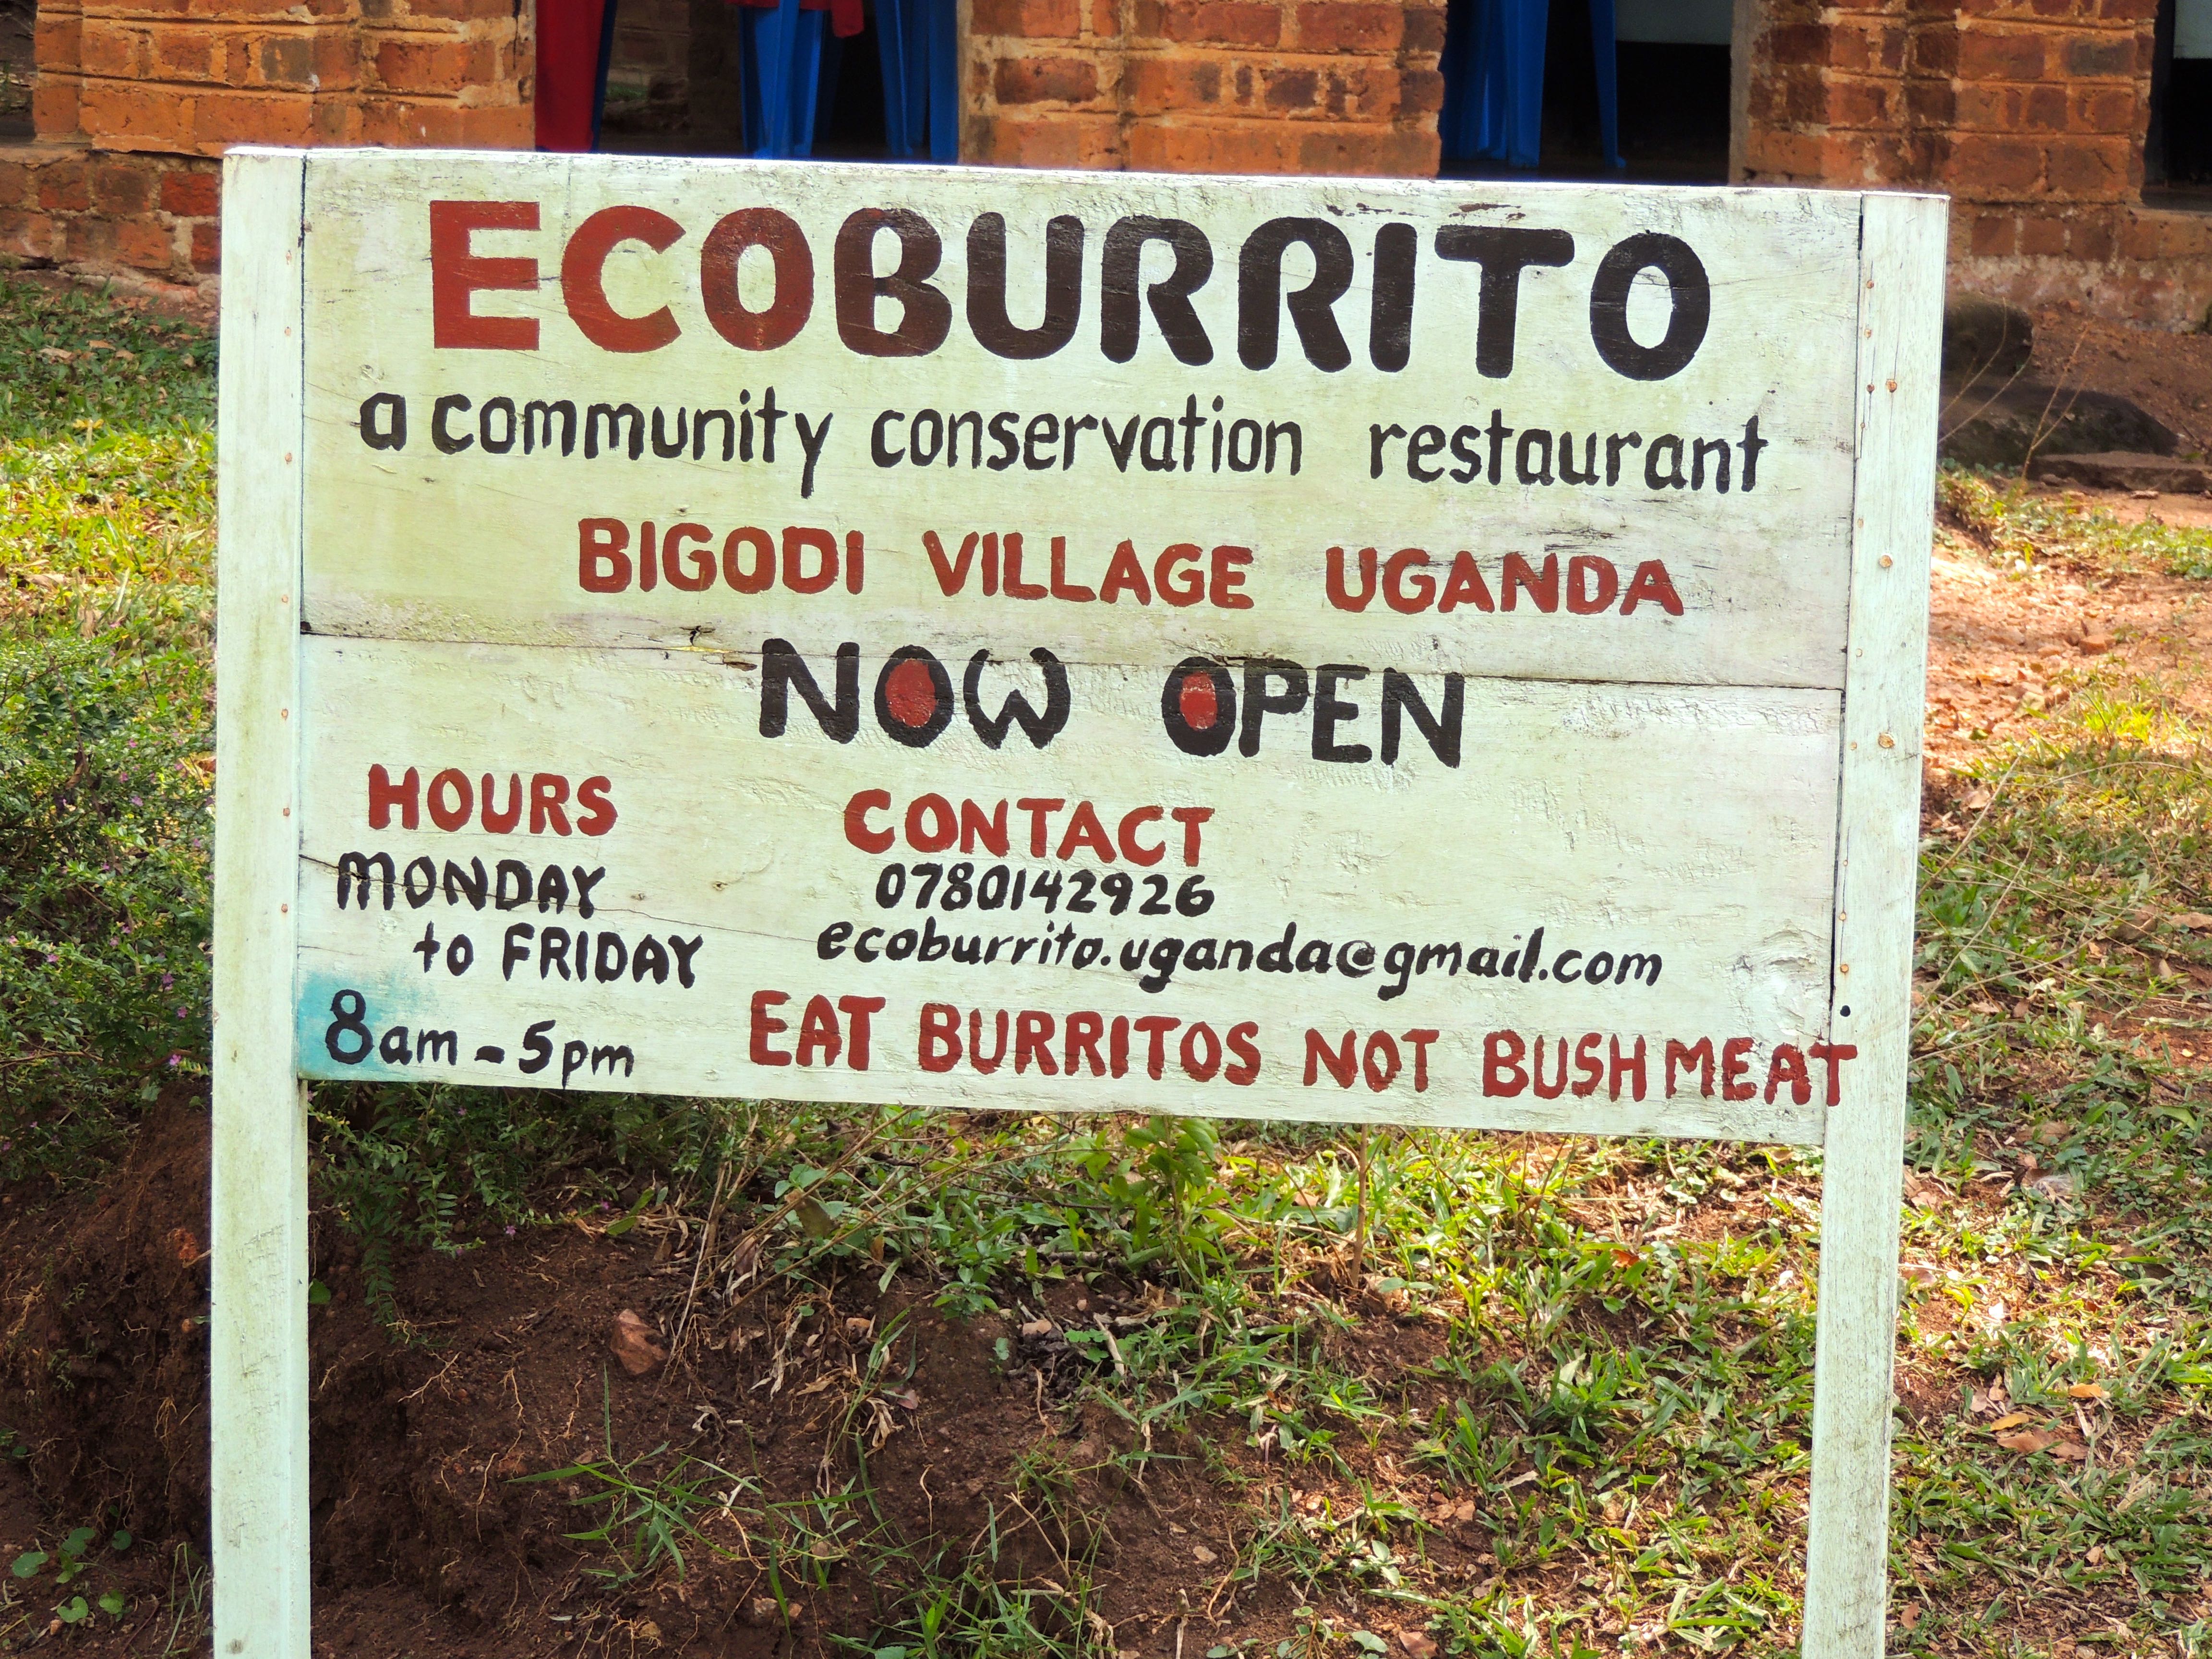 ECOBURRITO
a community conservation restaurant
BIGODI VILLAGE UGANDA
NOW OPEN
HOURS
MONDAY
to FRIDAY
8am - 5pm
CONTACT
0780142926
ecoburrito.uganda@gmail.com
EAT BURRITOS NOT BUSHMEAT